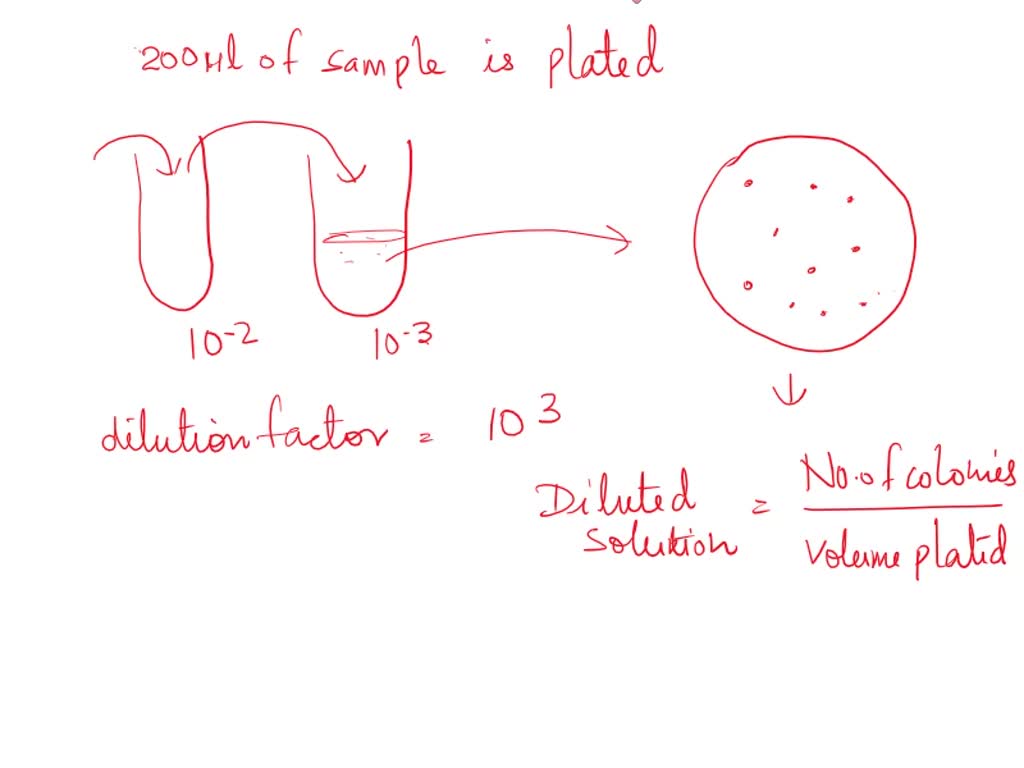 200μl of sample is plated
10-2
10-3
dilution factor = 10 3
Diluted solution = No. of colonies
Volume plated